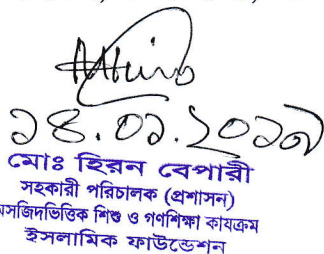 ১৪.০১.২০১৭
মোঃ হিরন বেপারী
সহকারী পরিচালক (প্রশাসন)
মসজিদভিত্তিক শিশু ও গণশিক্ষা কার্যক্রম
ইসলামিক ফাউন্ডেশন